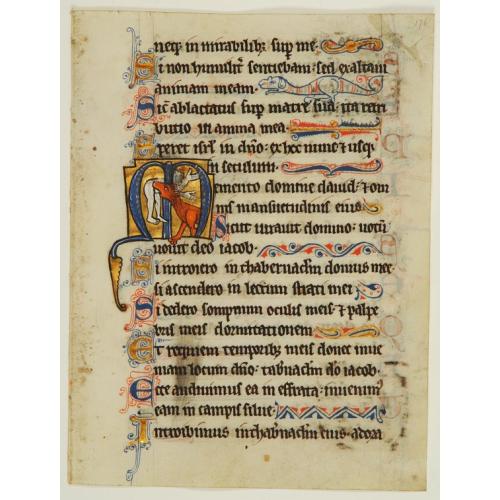 neq; in mirabilib; sup me.
Si non humilit sentiebam: sed exaltaui
animam meam.
Sic ablactatus sup matre sua: ita retri
butio in anima mea.
Speret isrl in dño: ex hoc nunc & usq;
in seculum.
Memento domine dauid: & om
nis mansuetudinis eius.
Sicut iurauit domino: uotū
uouit deo iacob.
Si introiero in thabernaclm domus mee:
si ascendero in lectum strati mei.
Si dedero sompnum oculis meis: & palpe
bris meis dormitationem.
Et requiem temporib; meis donec inue
niam locum dño: tabnaclm dō iacob.
Ecce audiuimus ea in effrata: inuenim
eam in campis silue.
Introibimus in thabnaclm eius: adora